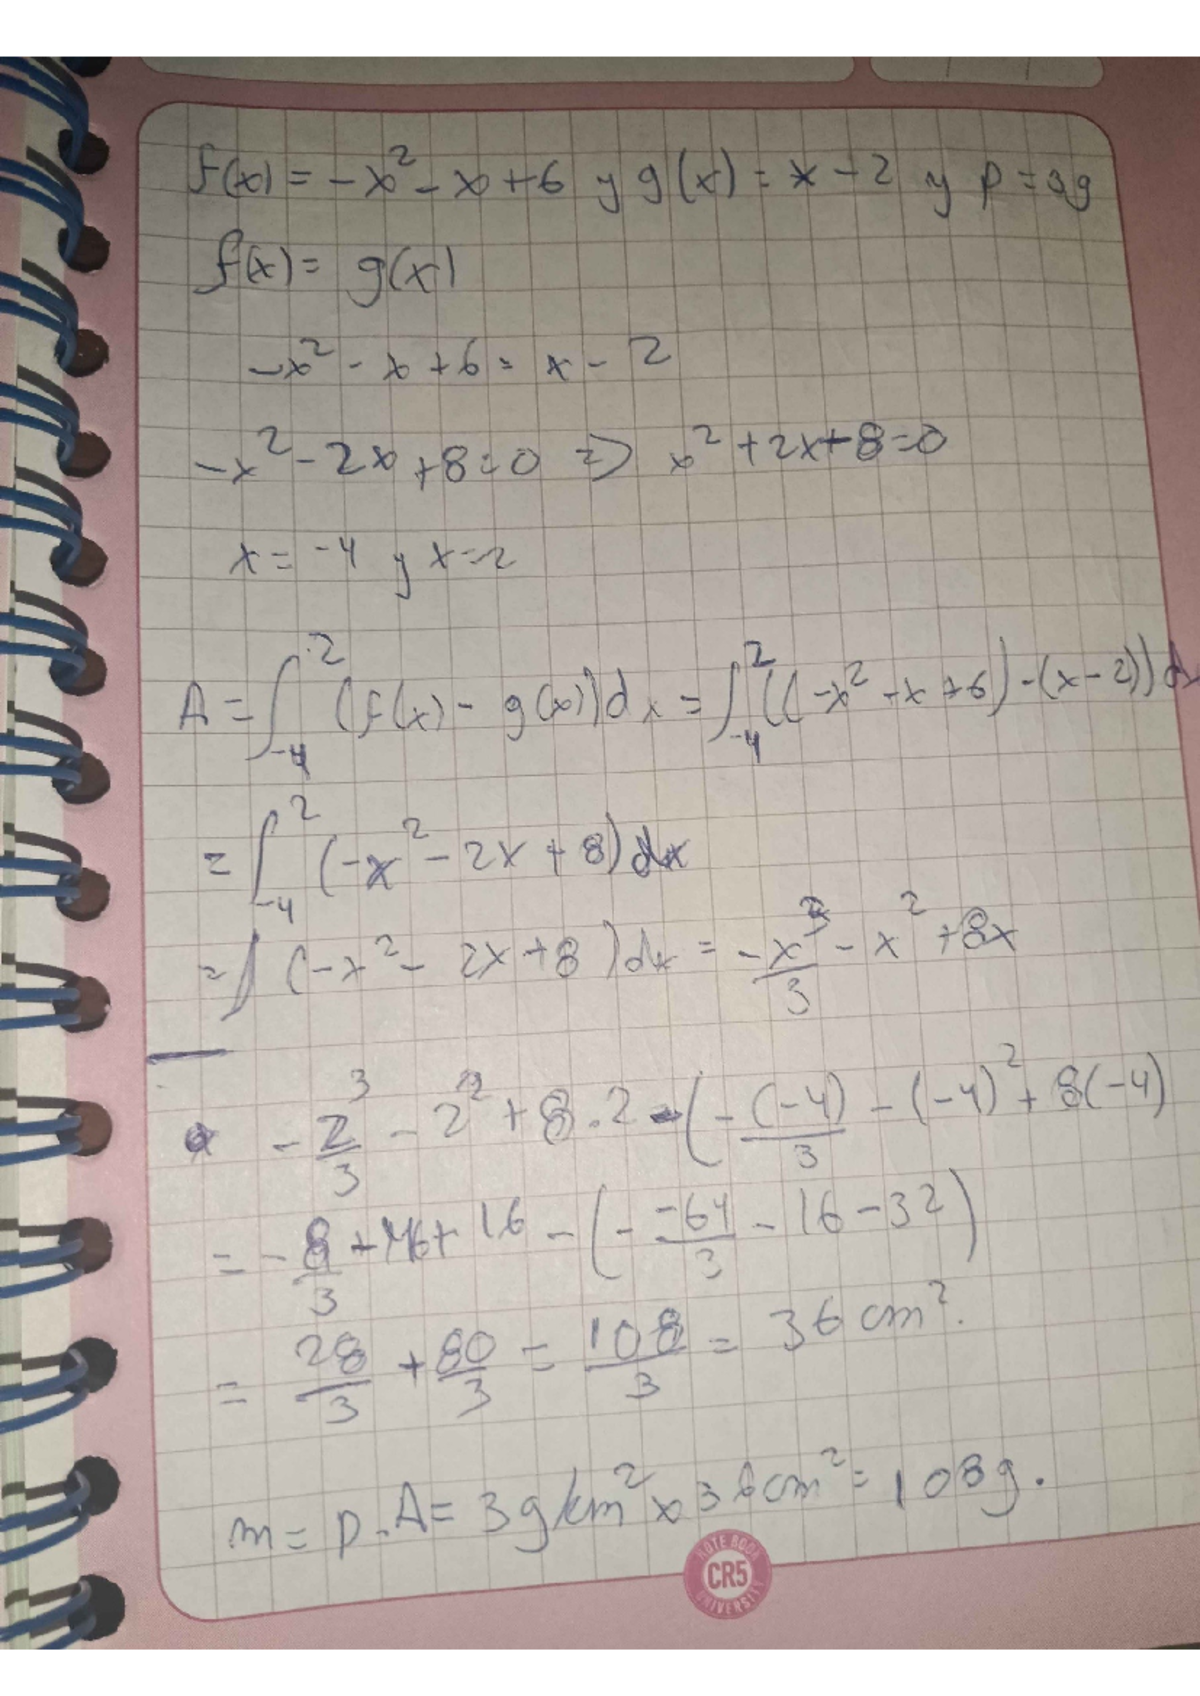 f(x) = -x² - x + 6 y g(x) = x - 2 y p = 3g
f(x) = g(x)
-x² - x + 6 = x - 2
-x² - 2x + 8 = 0 => x² + 2x - 8 = 0
x = -4 y x = 2
A = ∫_{-4}^{2} (f(x) - g(x)) dx = ∫_{-4}^{2} ((-x² - x + 6) - (x - 2)) dx
= ∫_{-4}^{2} (-x² - 2x + 8) dx
= ∫ (-x² - 2x + 8) dx = -x³/3 - x² + 8x
-2³/3 - 2² + 8.2 - (-(-4)/3 - (-4)² + 8(-4)
= -8/3 + 16 - (- -64/3 - 16 - 32)
= 28/3 + 80/3 = 108/3 = 36 cm².
m = p . A = 3g/cm² x 36cm² = 108g.
NOTE BOOK
CR5
UNIVERSITY